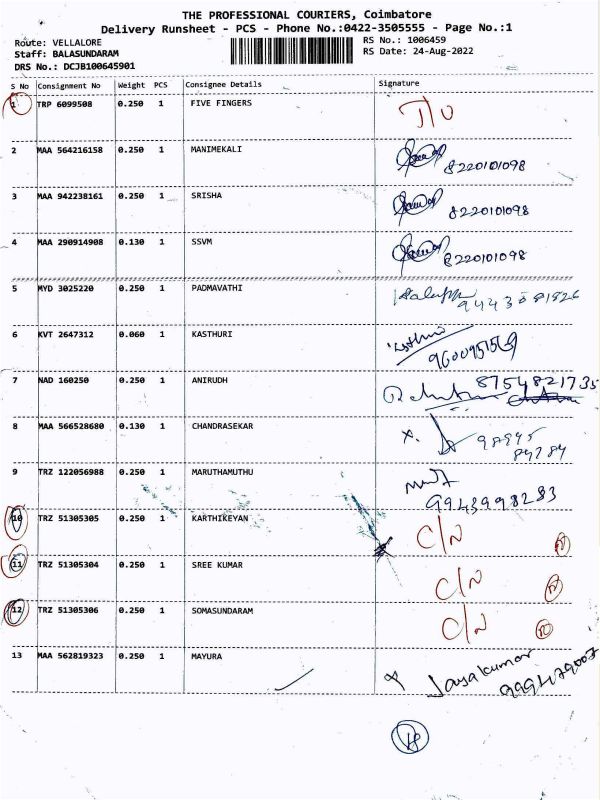 THE PROFESSIONAL COURIERS, Coimbatore
Delivery Runsheet - PCS - Phone No.:0422-3505555 - Page No.:1
Route: VELLALORE
RS No.: 1006459
Staff: BALASUNDARAM
RS Date: 24-Aug-2022
DRS No.: DCJB100645901
S No Consignment No Weight PCS Consignee Details Signature
1 TRP 6099508 0.250 1 FIVE FINGERS
2 MAA 564216158 0.250 1 MANIMEKALI 8220101098
3 MAA 942238161 0.250 1 SRISHA 8220101098
4 MAA 290914908 0.130 1 SSVM 8220101098
5 MYD 3025220 0.250 1 PADMAVATHI
6 KVT 2647312 0.060 1 KASTHURI
7 NAD 160250 0.250 1 ANIRUDH 8754821735
8 MAA 566528680 0.130 1 CHANDRASEKAR
9 TRZ 122056988 0.250 1 MARUTHAMUTHU 9943998283
10 TRZ 51305305 0.250 1 KARTHIKEYAN C/N
11 TRZ 51305304 0.250 1 SREE KUMAR C/N
12 TRZ 51305306 0.250 1 SOMASUNDARAM C/N
13 MAA 562819323 0.250 1 MAYURA Jayakumar